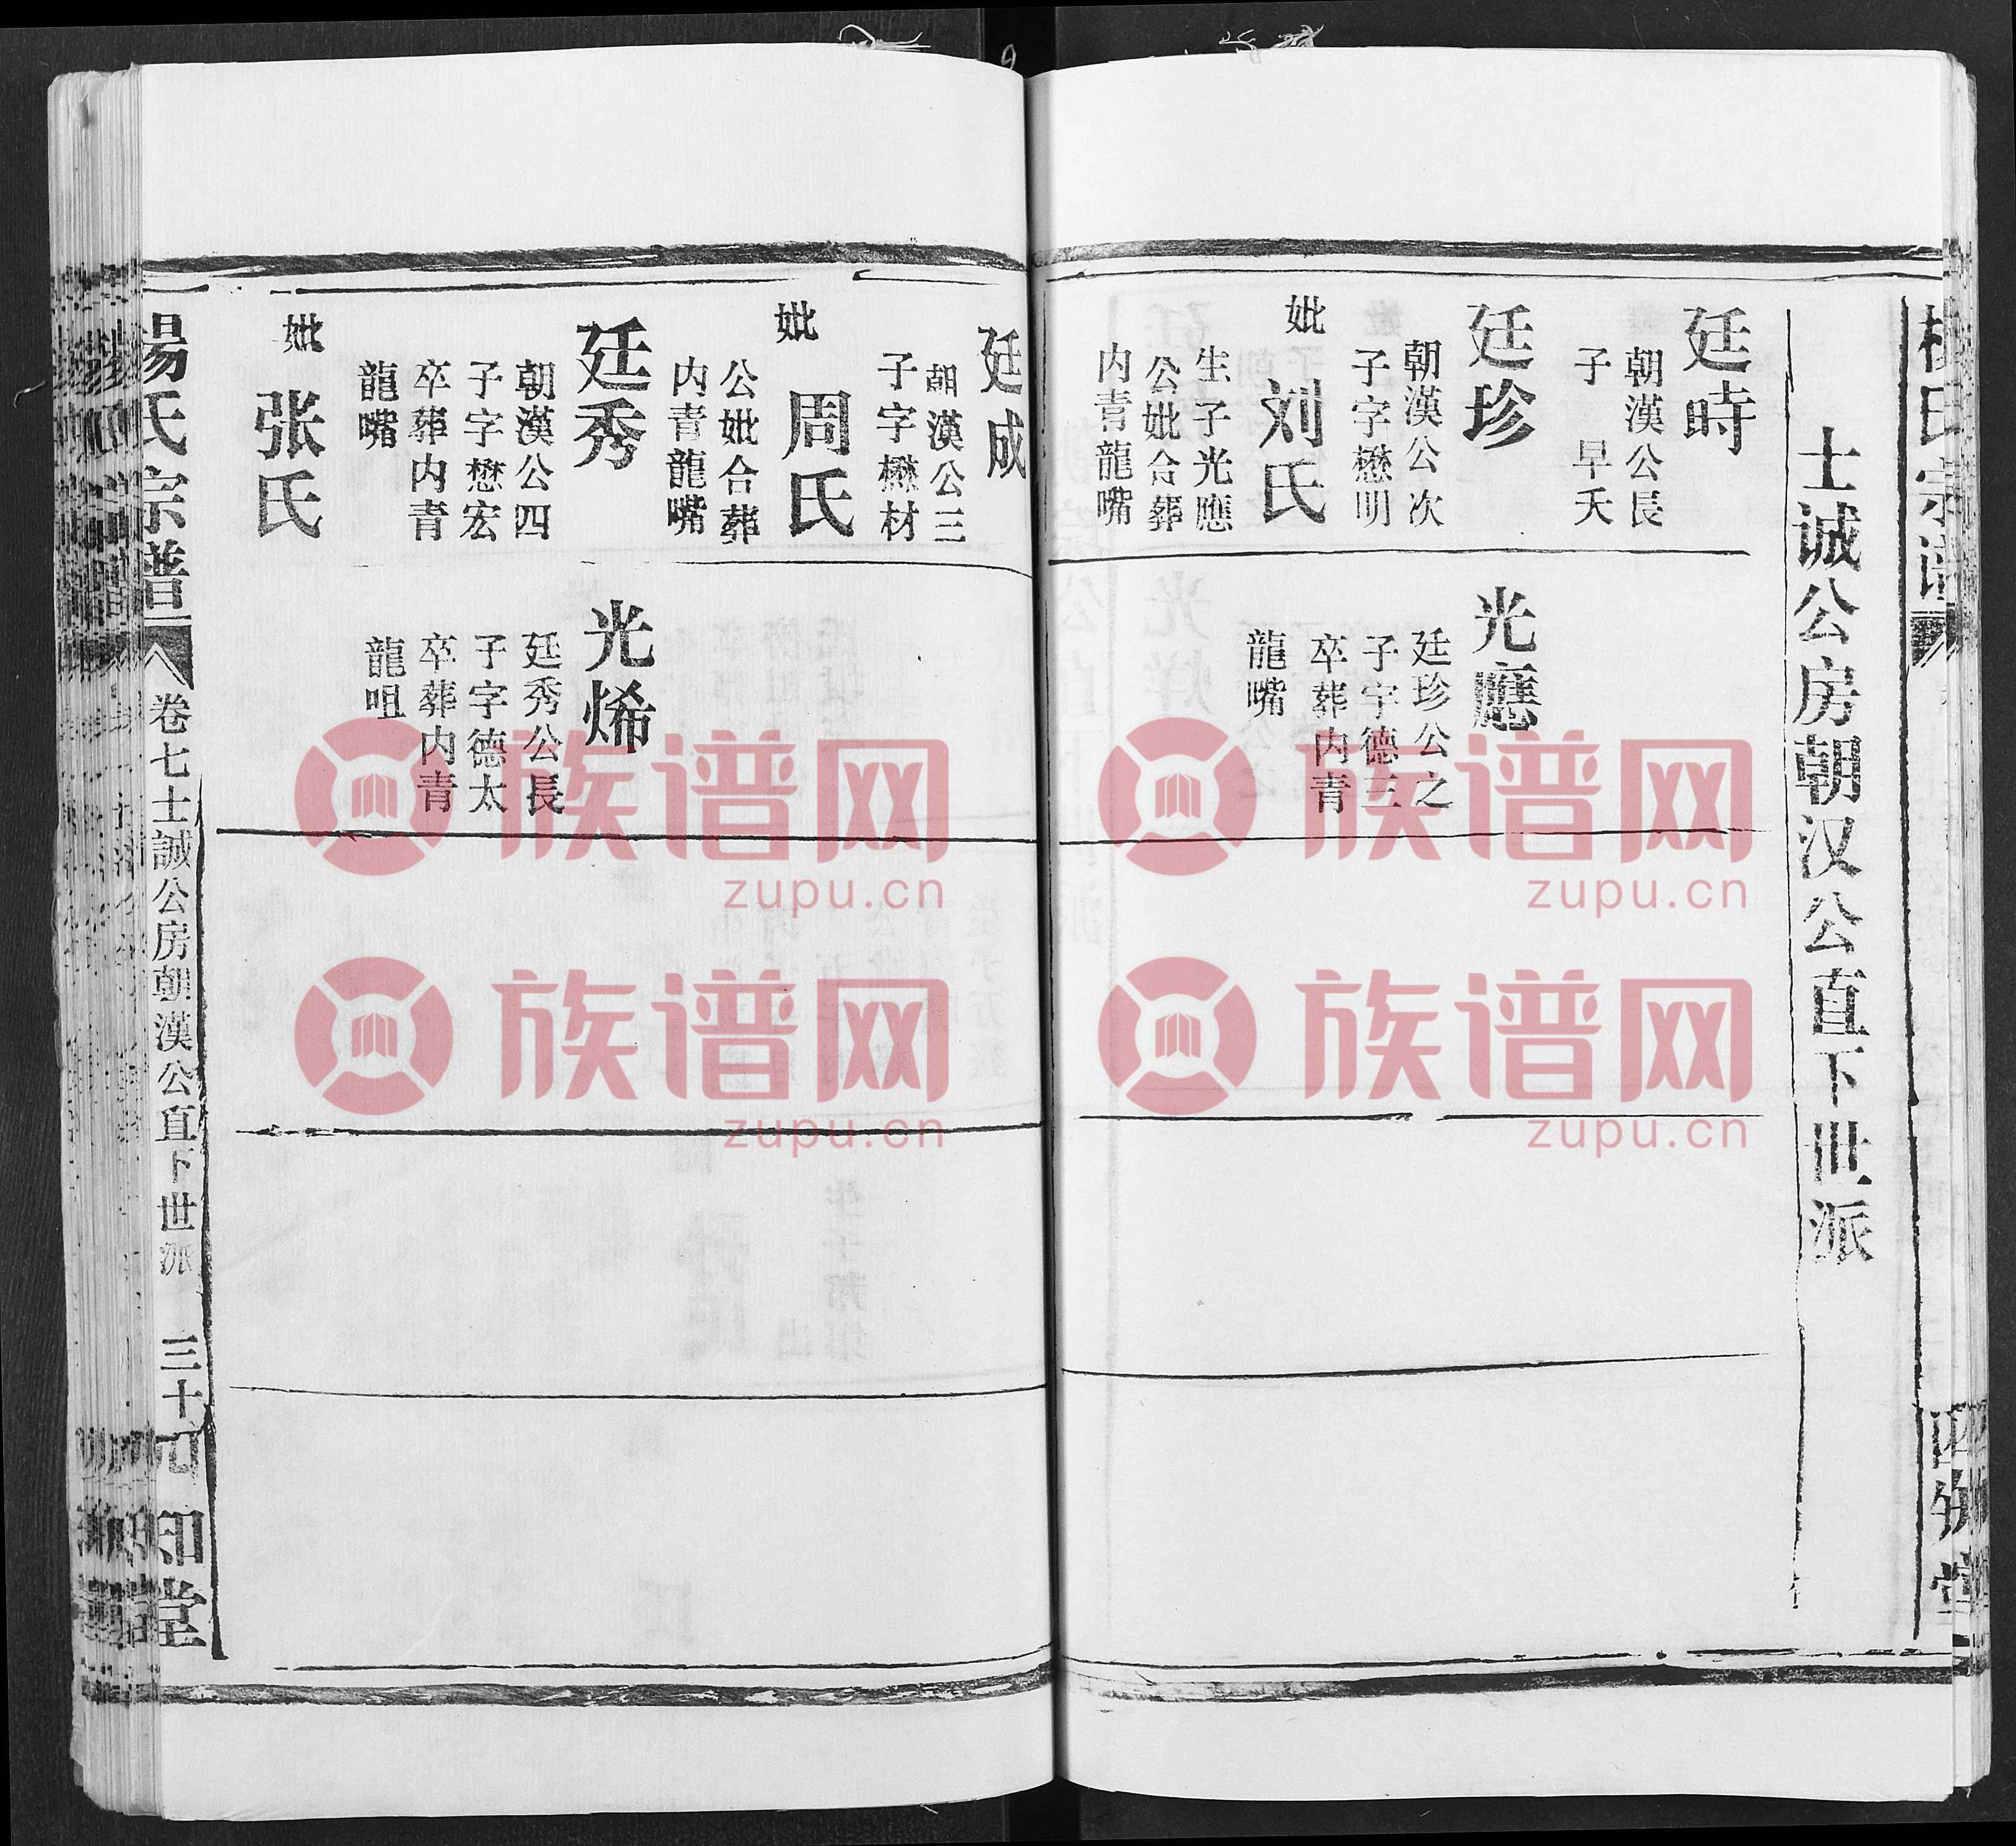 士诚公房朝汉公直下世派
廷時
朝漢公長
子早夭
廷珍
朝漢公次
子字懋明
妣刘氏
生子光應
公妣合葬
内青龍嘴
光應
廷珍公之
子字德三
卒葬内青
龍嘴
廷成
朝漢公三
子字懋材
妣周氏
公妣合葬
内青龍嘴
廷秀
朝漢公四
子字懋宏
卒葬内青
龍嘴
妣张氏
光烯
廷秀公長
子字德太
卒葬内青
龍咀
楊氏宗譜
卷七士誠公房朝漢公直下世派
三十
四知堂
族谱网
zupu.cn
族谱网
zupu.cn
族谱网
zupu.cn
族谱网
zupu.cn